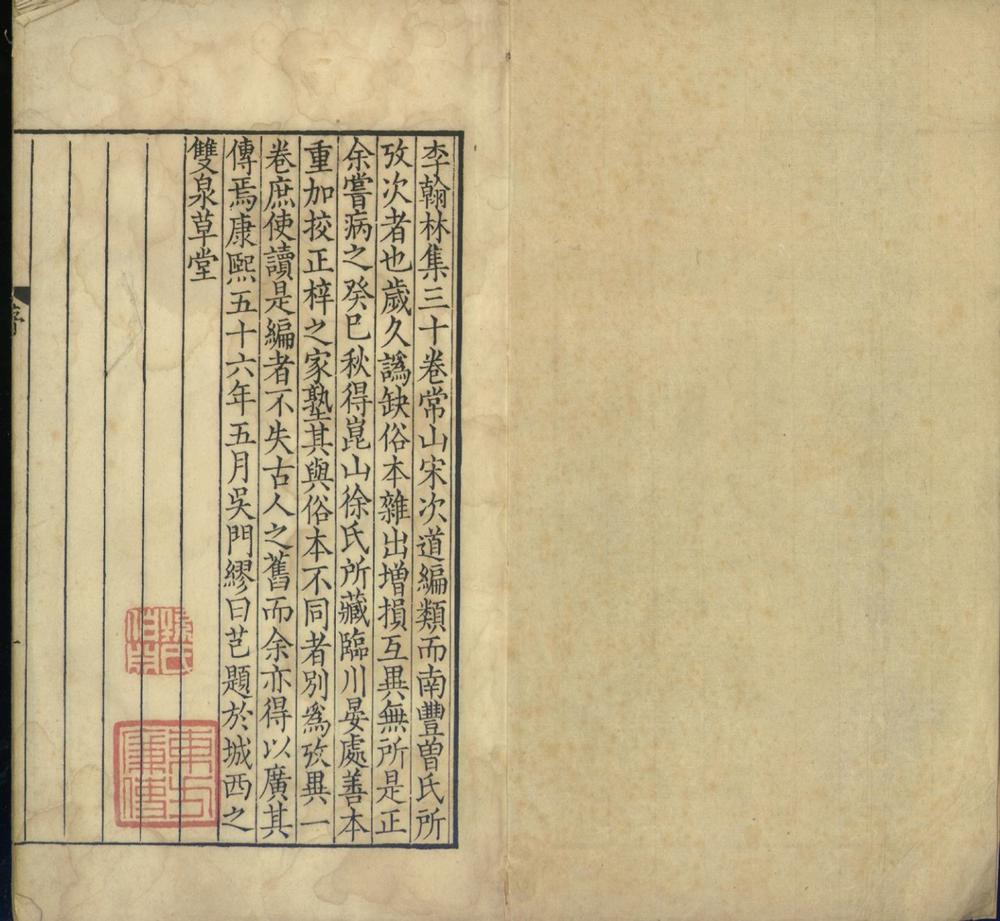 李翰林集三十卷常山宋次道編類而南豐曽氏所
攷次者也歲久譌缺俗本雜出增損互異無所是正
余嘗病之癸巳秋得崑山徐氏所藏臨川晏處善本
重加挍正梓之家塾其與俗本不同者別爲攷異一
卷庶使讀是編者不失古人之舊而余亦得以廣其
傳焉康熙五十六年五月吳門繆曰芑題於城西之
雙泉草堂
序
一